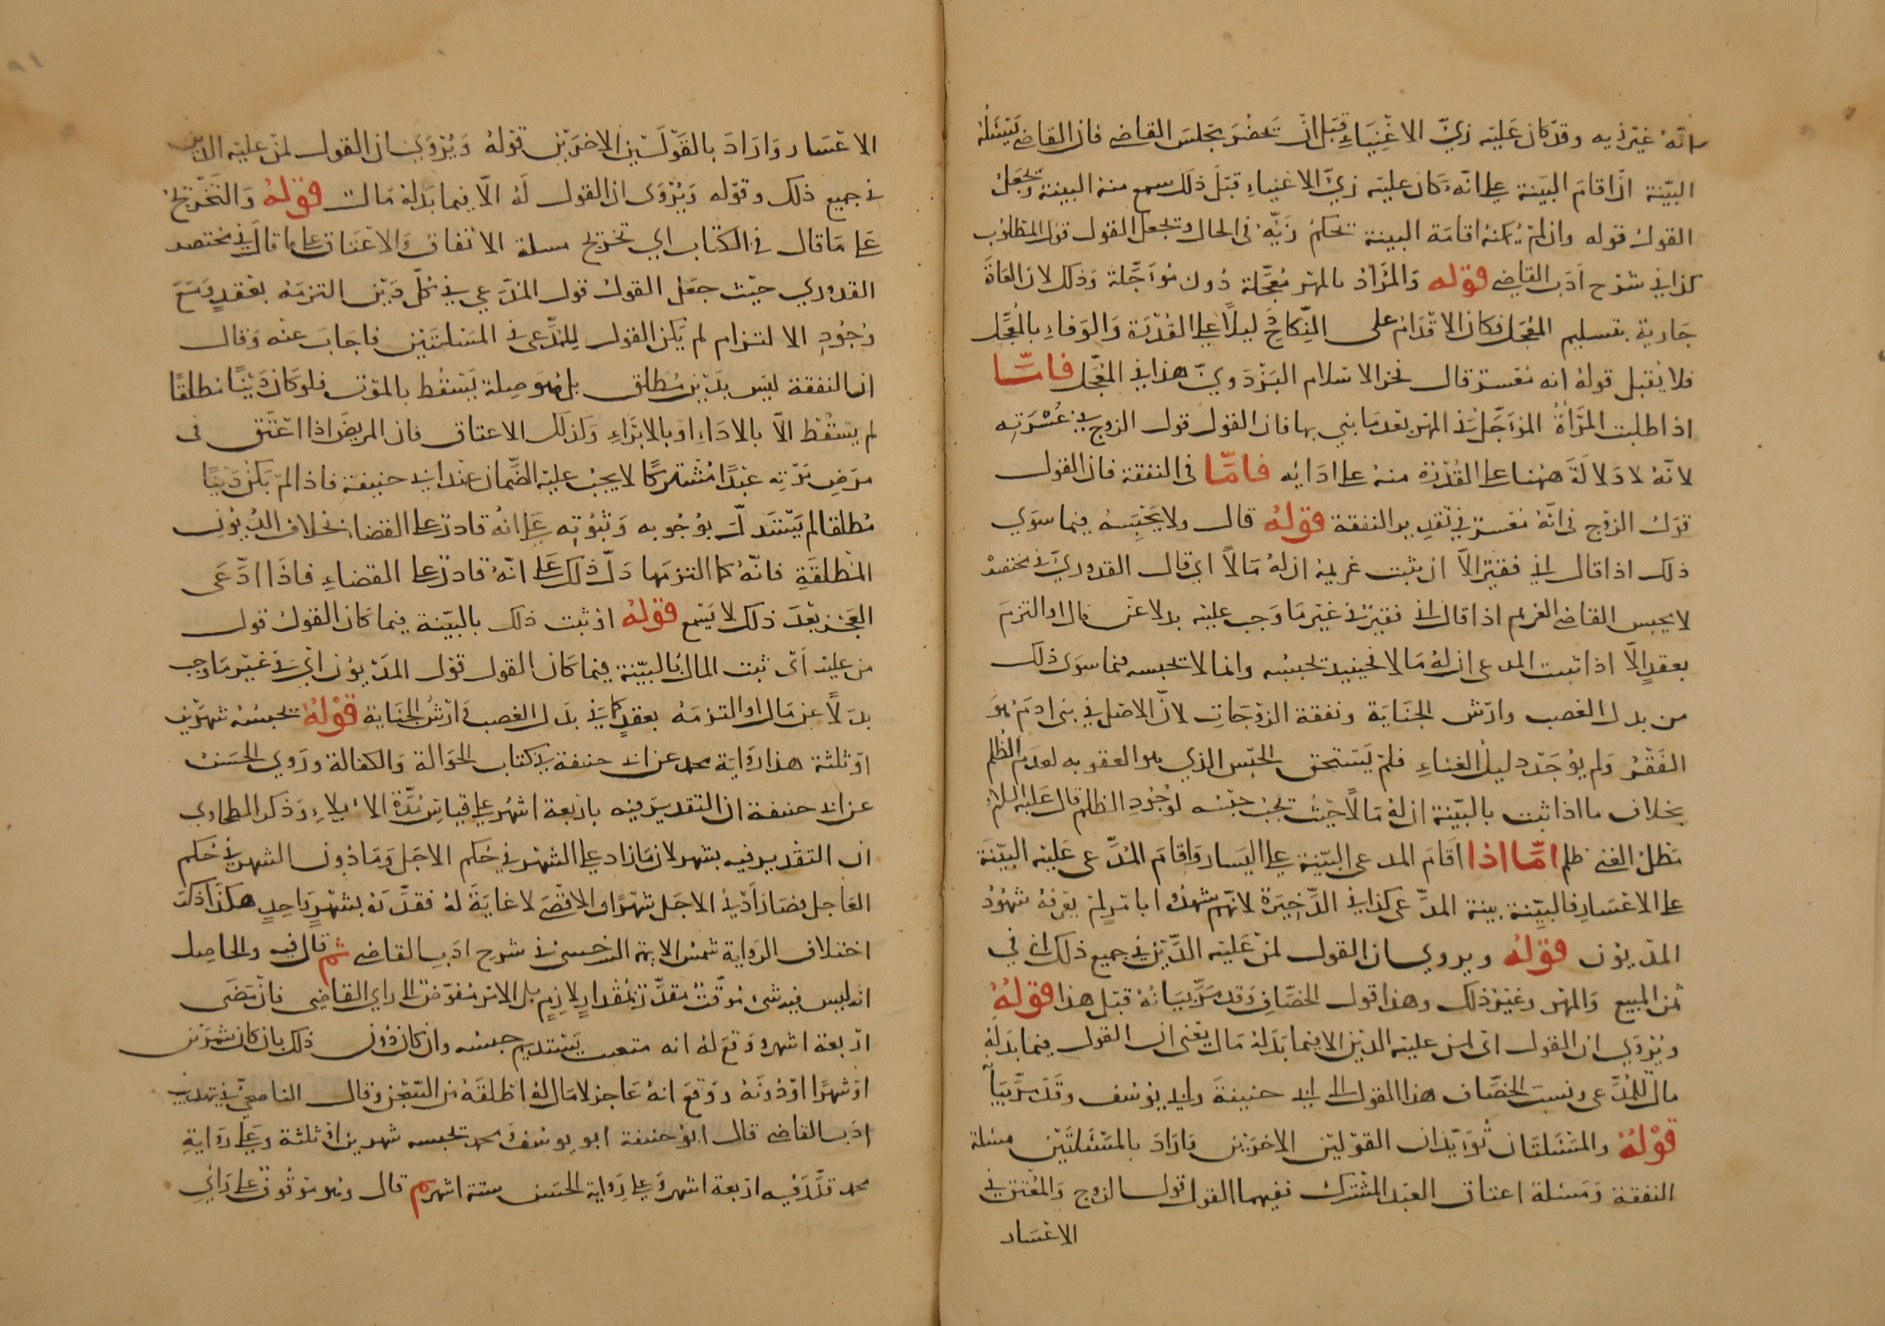 انه غير زيه وقد كان عليه زي الاغنياء قبل ان تحضر بمجلس القاضي فان القاضي يسئله
البينة ان اقام البينة على انه كان عليه زي الاغنياء قبل ذلك سمع منه البينة وتجعل
القول قوله وان لم يمكنه اقامة البينة تحكم زيه في الحال وتجعل القول قول المطلوب
كذا في شرح ادب القاضي قوله والمراد بالمهر معجلة دون مؤجلة وذلك لان العادة
جارية بتسليم المعجل فكان الاقدام على النكاح دليلا على القدرة والوفاء بالمعجل
فلا يقبل قوله انه معسر قال فخر الاسلام البزدوي هذا في المعجل فامّا
اذا طلبت المرأة المؤجل في المهر بعد ما بني بها فان القول قول الزوج في عسرته
لانه لا دلالة ههنا على القدرة منه على ادائه فامّا في النفقة فان القول
قول الزوج في انه معسر في تقدير النفقة قوله قال ولا يحبسه فيما سوى
ذلك اذا قال اني فقير الا ان يثبت غريمه ان له مالا اي قال القدوري في مختصره
لا يحبس القاضي الغريم اذا قال اني فقير في غير ما وجب عليه بدلا عن مال او التزم
بعقد الا اذا اثبت المدعي ان له مالا فحينيد تحبسه وانما لا تحبسه فيما سوى ذلك
من بدل الغصب وارش الجناية ونفقة الزوجات لان الاصل في بني ادم هو
الفقر ولم يوجد دليل الغناء فلم يستحق الحبس الذي هو العقوبه لعدم الظلم
بخلاف ما اذا ثبت بالبينة ان له مالا حيث يجب حبسه لوجود الظلم قال عليه السلام
مطل الغني ظلم امّا اذا اقام المدعي البينة على اليسار واقام المدعى عليه البينة
على الاعسار فالبينة بينة المدعي كذا في الذخيرة لانهم شهدوا بامر لم يعرفه شهود
المديون قوله ويروى ان القول لمن عليه الدين في جميع ذلك اي في
ثمن المبيع والمهر وغير ذلك وهذا قول الخصاف وقد مر بيانه قبل هذا قوله
ويروي ان القول اي لمن عليه الدين الا فيما بدله مال يعني ان القول فيما بدله
مال للمدعي ونسب الخصاف هذا القول الى ابي حنيفة وابي يوسف وقد مر بيانه
قوله والمسئلتان تؤيدان القولين الاخرين واراد بالمسئلتين مسئلة
النفقة ومسئلة اعتاق العبد المشترك ففيهما القول قول الزوج والمعتق في
الاعسار
الاعسار واراد بالقولين الاخرين قوله ويروي ان القول لمن عليه الدين
في جميع ذلك وقوله ويروى ان القول له الا فيما بدله مال قوله والتخريج
على ما قال في الكتاب اي تخريج مسلة الانفاق والاعتاق على ما قال في مختصر
القدوري حيث جعل القول قول المدعي في كل دين التزمه بعقد ومع
وجود الالتزام لم يكن القول للمدعي في المسئلتين فاجاب عنه وقال
ان النفقة ليس بدين مطلق بل هو صلة يسقط بالموت فلو كان دينا مطلقا
لم يسقط الا بالاداء او بالابراء وكذلك الاعتاق فان المريض اذا اعتق في
مرض موته عبدا مشتركا لا يجب عليه الضمان عند ابي حنيفة فاذا لم يكن دينا
مطلقا لم يستدل بوجوبه وثبوته على انه قادر على القضا بخلاف الديون
المطلقة فانه كما التزمها دل ذلك على انه قادر على القضاء فاذا ادعى
العجز بعد ذلك لا يسمع قوله اذ ثبت ذلك بالبينة فيما كان القول قول
من عليه اى ثبت المال بالبينة فيما كان القول قول المديون اي في غير ما وجب
بدلا عن مال او التزمه بعقد كما في بدل الغصب وارش الجناية قوله تحبسه شهرين
او ثلثة هذا رواية محمد عن ابي حنيفة في كتاب الحوالة والكفالة وروي الحسن
عن ابي حنيفة ان التقدير فيه باربعة اشهر على قياس مدة الايلاء وذكر الطحاوي
ان التقدير فيه بشهر لان ما زاد على الشهر في حكم الاجل وما دون الشهر في حكم
العاجل فصار ادنى الاجل شهرا والاقصى لا غاية له فقدرته بشهر واحد هكذا ذكر
اختلاف الرواية شمس الايمة السرخسي في شرح ادب القاضي ثم قال فيه والحاصل
انه ليس فيه شئ موقت مقدر بمقدار لازم بل الامر مفوض الى راي القاضي فان مضى
اربعة اشهر ووقع له انه متعنت يستديم حبسه وان كان دون ذلك بان كان شهرين
او شهرا او دونه ووقع انه عاجز لا مال له اطلقه من السجن وقال الناصحي في تهذيب
ادب القاضي قال ابو حنيفة ابو يوسف ومحمد تحبسه شهرين او ثلثة وعلى رواية
محمد قدر فيه اربعة اشهر وعلى رواية الحسن ستة اشهر ثم قال وهو موقوف على راي